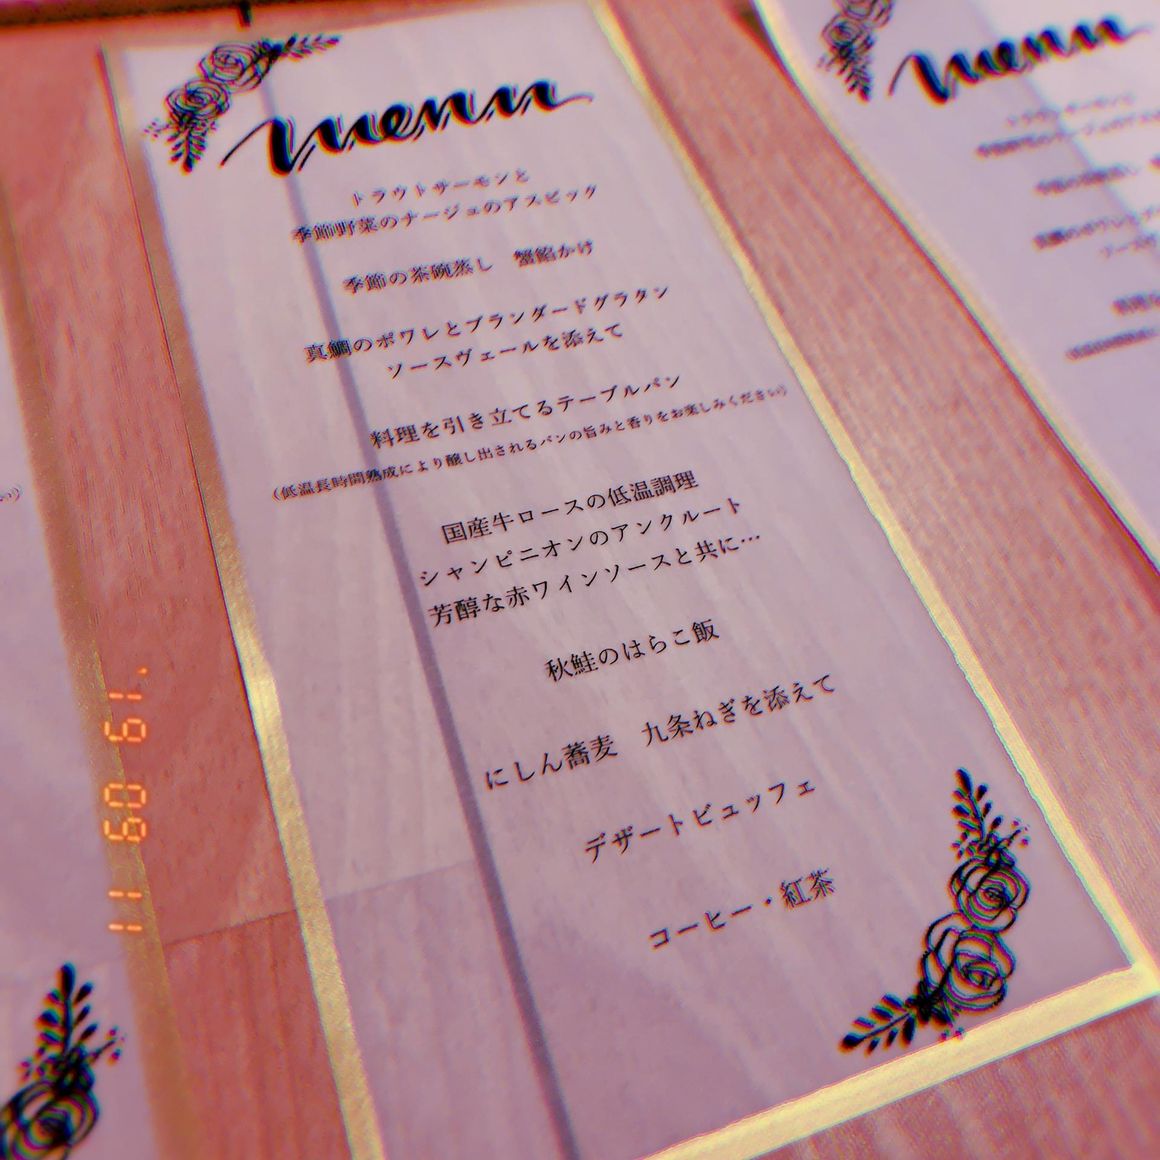 menu
トラウトサーモンと
季節野菜のナージュのアスピック
季節の茶碗蒸し 蟹餡かけ
真鯛のポワレとブランダードグラタン
ソースヴェールを添えて
料理を引き立てるテーブルパン
(低温長時間熟成により醸し出されるパンの旨みと香りをお楽しみください)
国産牛ロースの低温調理
シャンピニオンのアンクルート
芳醇な赤ワインソースと共に…
秋鮭のはらこ飯
にしん蕎麦 九条ねぎを添えて
デザートビュッフェ
コーヒー・紅茶
menu
11 09 19.